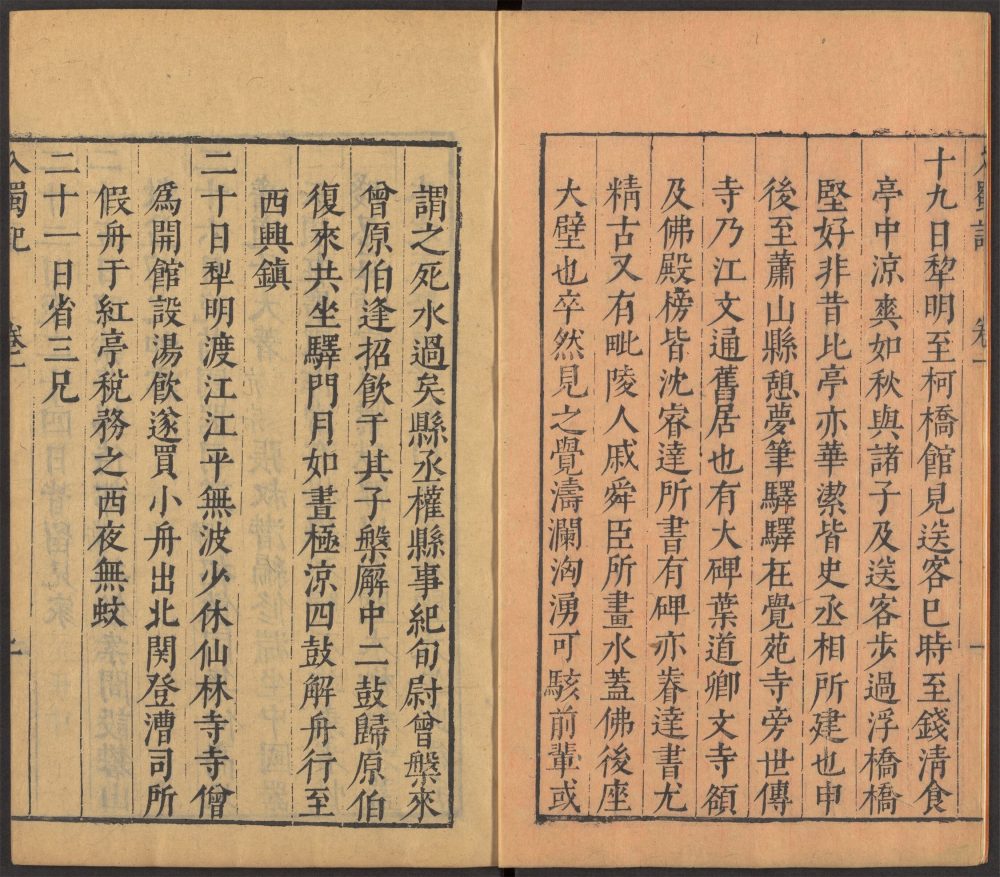 十九日犁明至柯橋館見送客巳時至錢清食
亭中涼爽如秋與諸子及送客步過浮橋橋
堅好非昔比亭亦華潔皆史丞相所建也申
後至蕭山縣憩夢筆驛驛在覺苑寺旁世傳
寺乃江文通舊居也有大碑葉道卿文寺額
及佛殿榜皆沈睿達所書有碑亦睿達書尤
精古又有毗陵人戚舜臣所畫水蓋佛後座
大壁也卒然見之覺濤瀾洶湧可駭前輩或
謂之死水過矣縣丞權縣事紀旬尉曾槃來
曾原伯逢招飲于其子槃廨中二鼓歸原伯
復來共坐驛門月如晝極涼四鼓解舟行至
西興鎮
二十日犁明渡江江平無波少休仙林寺寺僧
爲開館設湯飲遂買小舟出北関登漕司所
假舟于紅亭稅務之西夜無蚊
二十一日省三兄
入蜀記 卷一